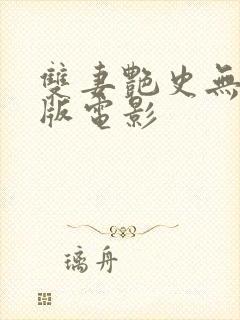 雙妻艷史無
版電影
璃舟